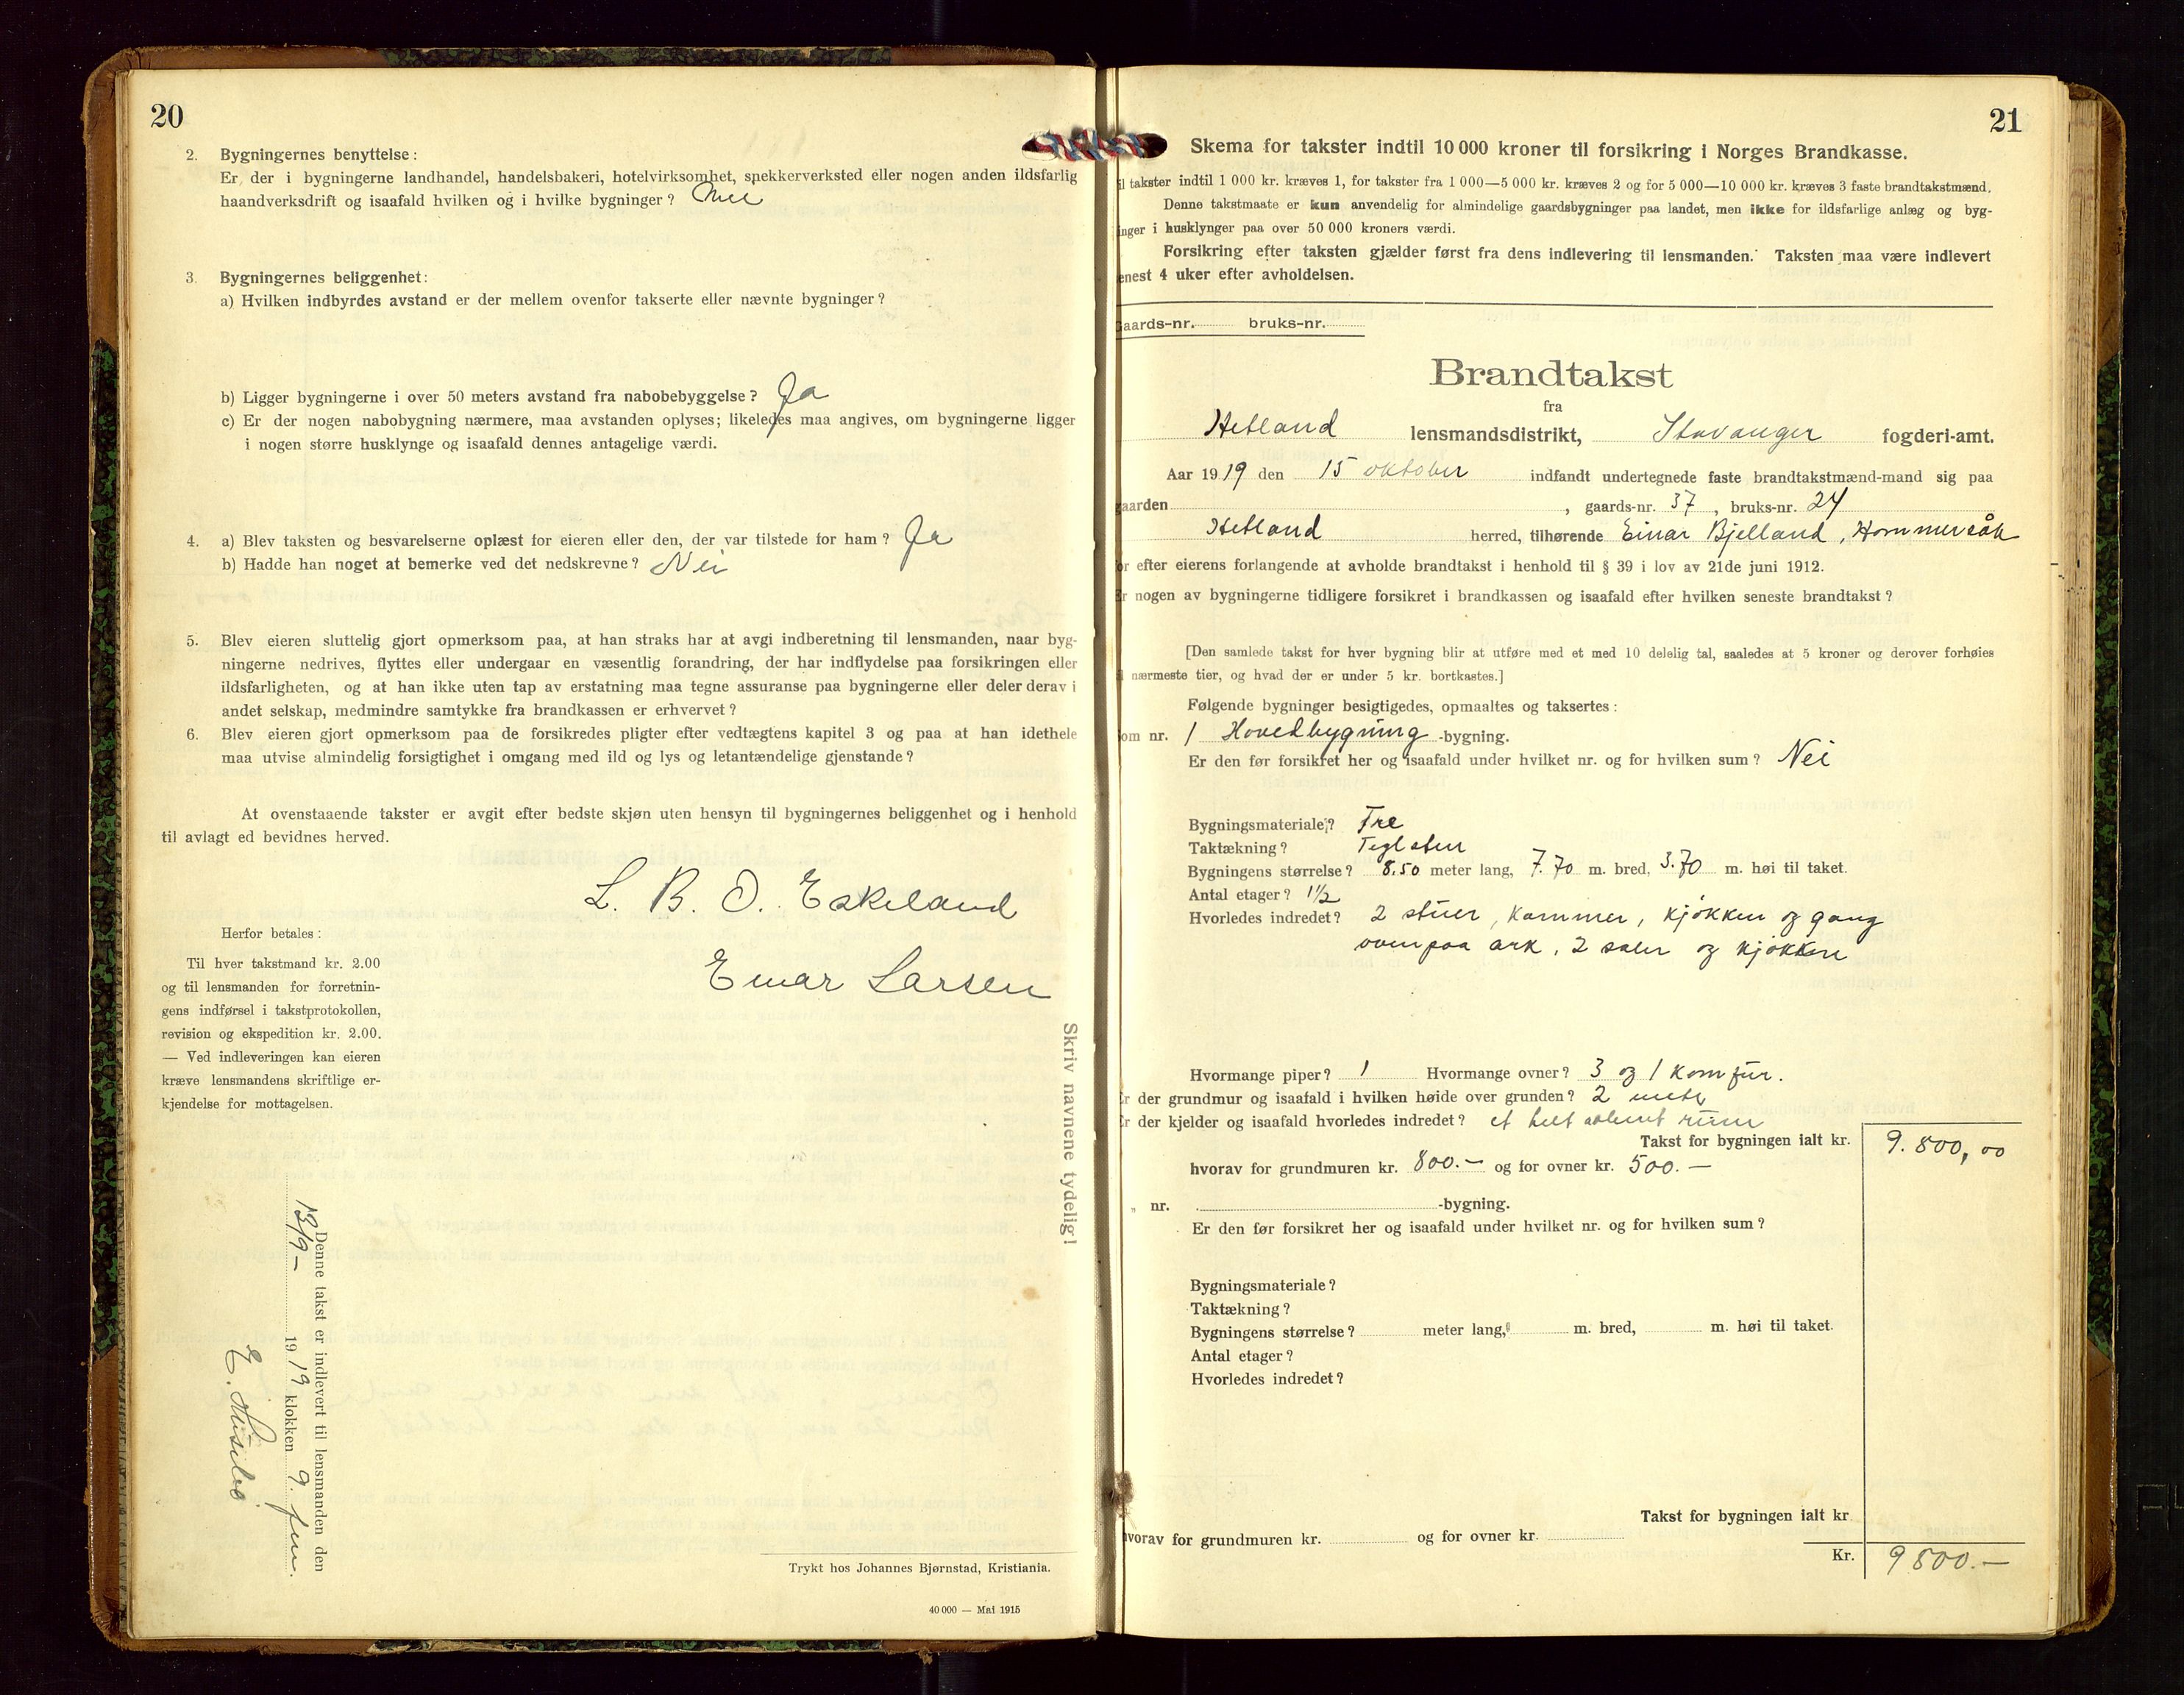 20
2. Bygningernes benyttelse:
Er der i bygningerne landhandel, handelsbakeri, hotelvirksomhet, spekkerverksted eller nogen anden ildsfarlig
haandverksdrift og isaafald hvilken og i hvilke bygninger?
3. Bygningernes beliggenhet:
a) Hvilken indbyrdes avstand er der mellem ovenfor takserte eller nævnte bygninger?
b) Ligger bygningerne i over 50 meters avstand fra nabobebyggelse? Ja
c) Er der nogen nabobygning nærmere, maa avstanden oplyses; likeledes maa angives, om bygningerne ligger
i nogen større husklynge og isaafald dennes antagelige værdi.
4. a) Blev taksten og besvarelserne oplæst for eieren eller den, der var tilstede for ham? Ja
b) Hadde han noget at bemerke ved det nedskrevne? Nei
5. Blev eieren sluttelig gjort opmerksom paa, at han straks har at avgi indberetning til lensmanden, naar byg-
ningerne nedrives, flyttes eller undergaar en væsentlig forandring, der har indflydelse paa forsikringen eller
ildsfarligheten, og at han ikke uten tap av erstatning maa tegne assuranse paa bygningerne eller deler derav i
andet selskap, medmindre samtykke fra brandkassen er erhvervet?
6. Blev eieren gjort opmerksom paa de forsikredes pligter efter vedtægtens kapitel 3 og paa at han idethele
maa utvise almindelig forsigtighet i omgang med ild og lys og letantændelige gjenstande?
At ovenstaaende takster er avgit efter bedste skjøn uten hensyn til bygningernes beliggenhet og i henhold
til avlagt ed bevidnes herved.
L. B. O. Eskeland
Einar Larsen
Herfor betales:
Til hver takstmand kr. 2.00
og til lensmanden for forretnin-
gens indførsel i takstprotokollen,
revision og ekspedition kr. 2.00.
— Ved indleveringen kan eieren
kræve lensmandens skriftlige er-
kjendelse for mottagelsen.
Skriv navnene tydelig!
Denne takst er indlevert til lensmanden den
13/9- 1919 klokken 9. fm.
Trykt hos Johannes Bjørnstad, Kristiania.
40 000 — Mai 1915
21
Skema for takster indtil 10 000 kroner til forsikring i Norges Brandkasse.
il takster indtil 1 000 kr. kræves 1, for takster fra 1 000—5 000 kr. kræves 2 og for 5 000—10 000 kr. kræves 3 faste brandtakstmænd.
Denne takstmaate er kun anvendelig for almindelige gaardsbygninger paa landet, men ikke for ildsfarlige anlæg og byg-
inger i husklynger paa over 50 000 kroners værdi.
Forsikring efter taksten gjælder først fra dens indlevering til lensmanden. Taksten maa være indlevert
enest 4 uker efter avholdelsen.
Gaards-nr. bruks-nr.
Brandtakst
fra
Hetland lensmandsdistrikt, Stavanger fogderi-amt.
Aar 1919 den 15 oktober indfandt undertegnede faste brandtakstmænd-mand sig paa
gaarden , gaards-nr. 37, bruks-nr. 24
Hetland herred, tilhørende Einar Bjelland, Hommersåk
or efter eierens forlangende at avholde brandtakst i henhold til § 39 i lov av 21de juni 1912.
Er nogen av bygningerne tidligere forsikret i brandkassen og isaafald efter hvilken seneste brandtakst?
[Den samlede takst for hver bygning blir at utføre med et med 10 delelig tal, saaledes at 5 kroner og derover forhøies
l nærmeste tier, og hvad der er under 5 kr. bortkastes.]
Følgende bygninger besigtigedes, opmaaltes og taksertes:
om nr. 1 Hovedbygning -bygning.
Er den før forsikret her og isaafald under hvilket nr. og for hvilken sum? Nei
Bygningsmateriale? Træ
Taktækning? Teglsten
Bygningens størrelse? 8.50 meter lang, 7.70 m. bred, 3.70 m. høi til taket.
Antal etager? 1½
Hvorledes indredet? 2 stuer, kammer, kjøkken og gang
ovenpaa ark, 2 saler og kjøkken
Hvormange piper? 1 Hvormange ovner? 3 og 1 komfur.
Er der grundmur og isaafald i hvilken høide over grunden? 2 meter
Er der kjelder og isaafald hvorledes indredet? et helt rum
Takst for bygningen ialt kr. 9.800,00
hvorav for grundmuren kr. 800.— og for ovner kr. 500.—
„ nr. -bygning.
Er den før forsikret her og isaafald under hvilket nr. og for hvilken sum?
Bygningsmateriale?
Taktækning?
Bygningens størrelse? meter lang, m. bred, m. høi til taket.
Antal etager?
Hvorledes indredet?
Takst for bygningen ialt kr
hvorav for grundmuren kr. og for ovner kr.
Kr. 9800.—